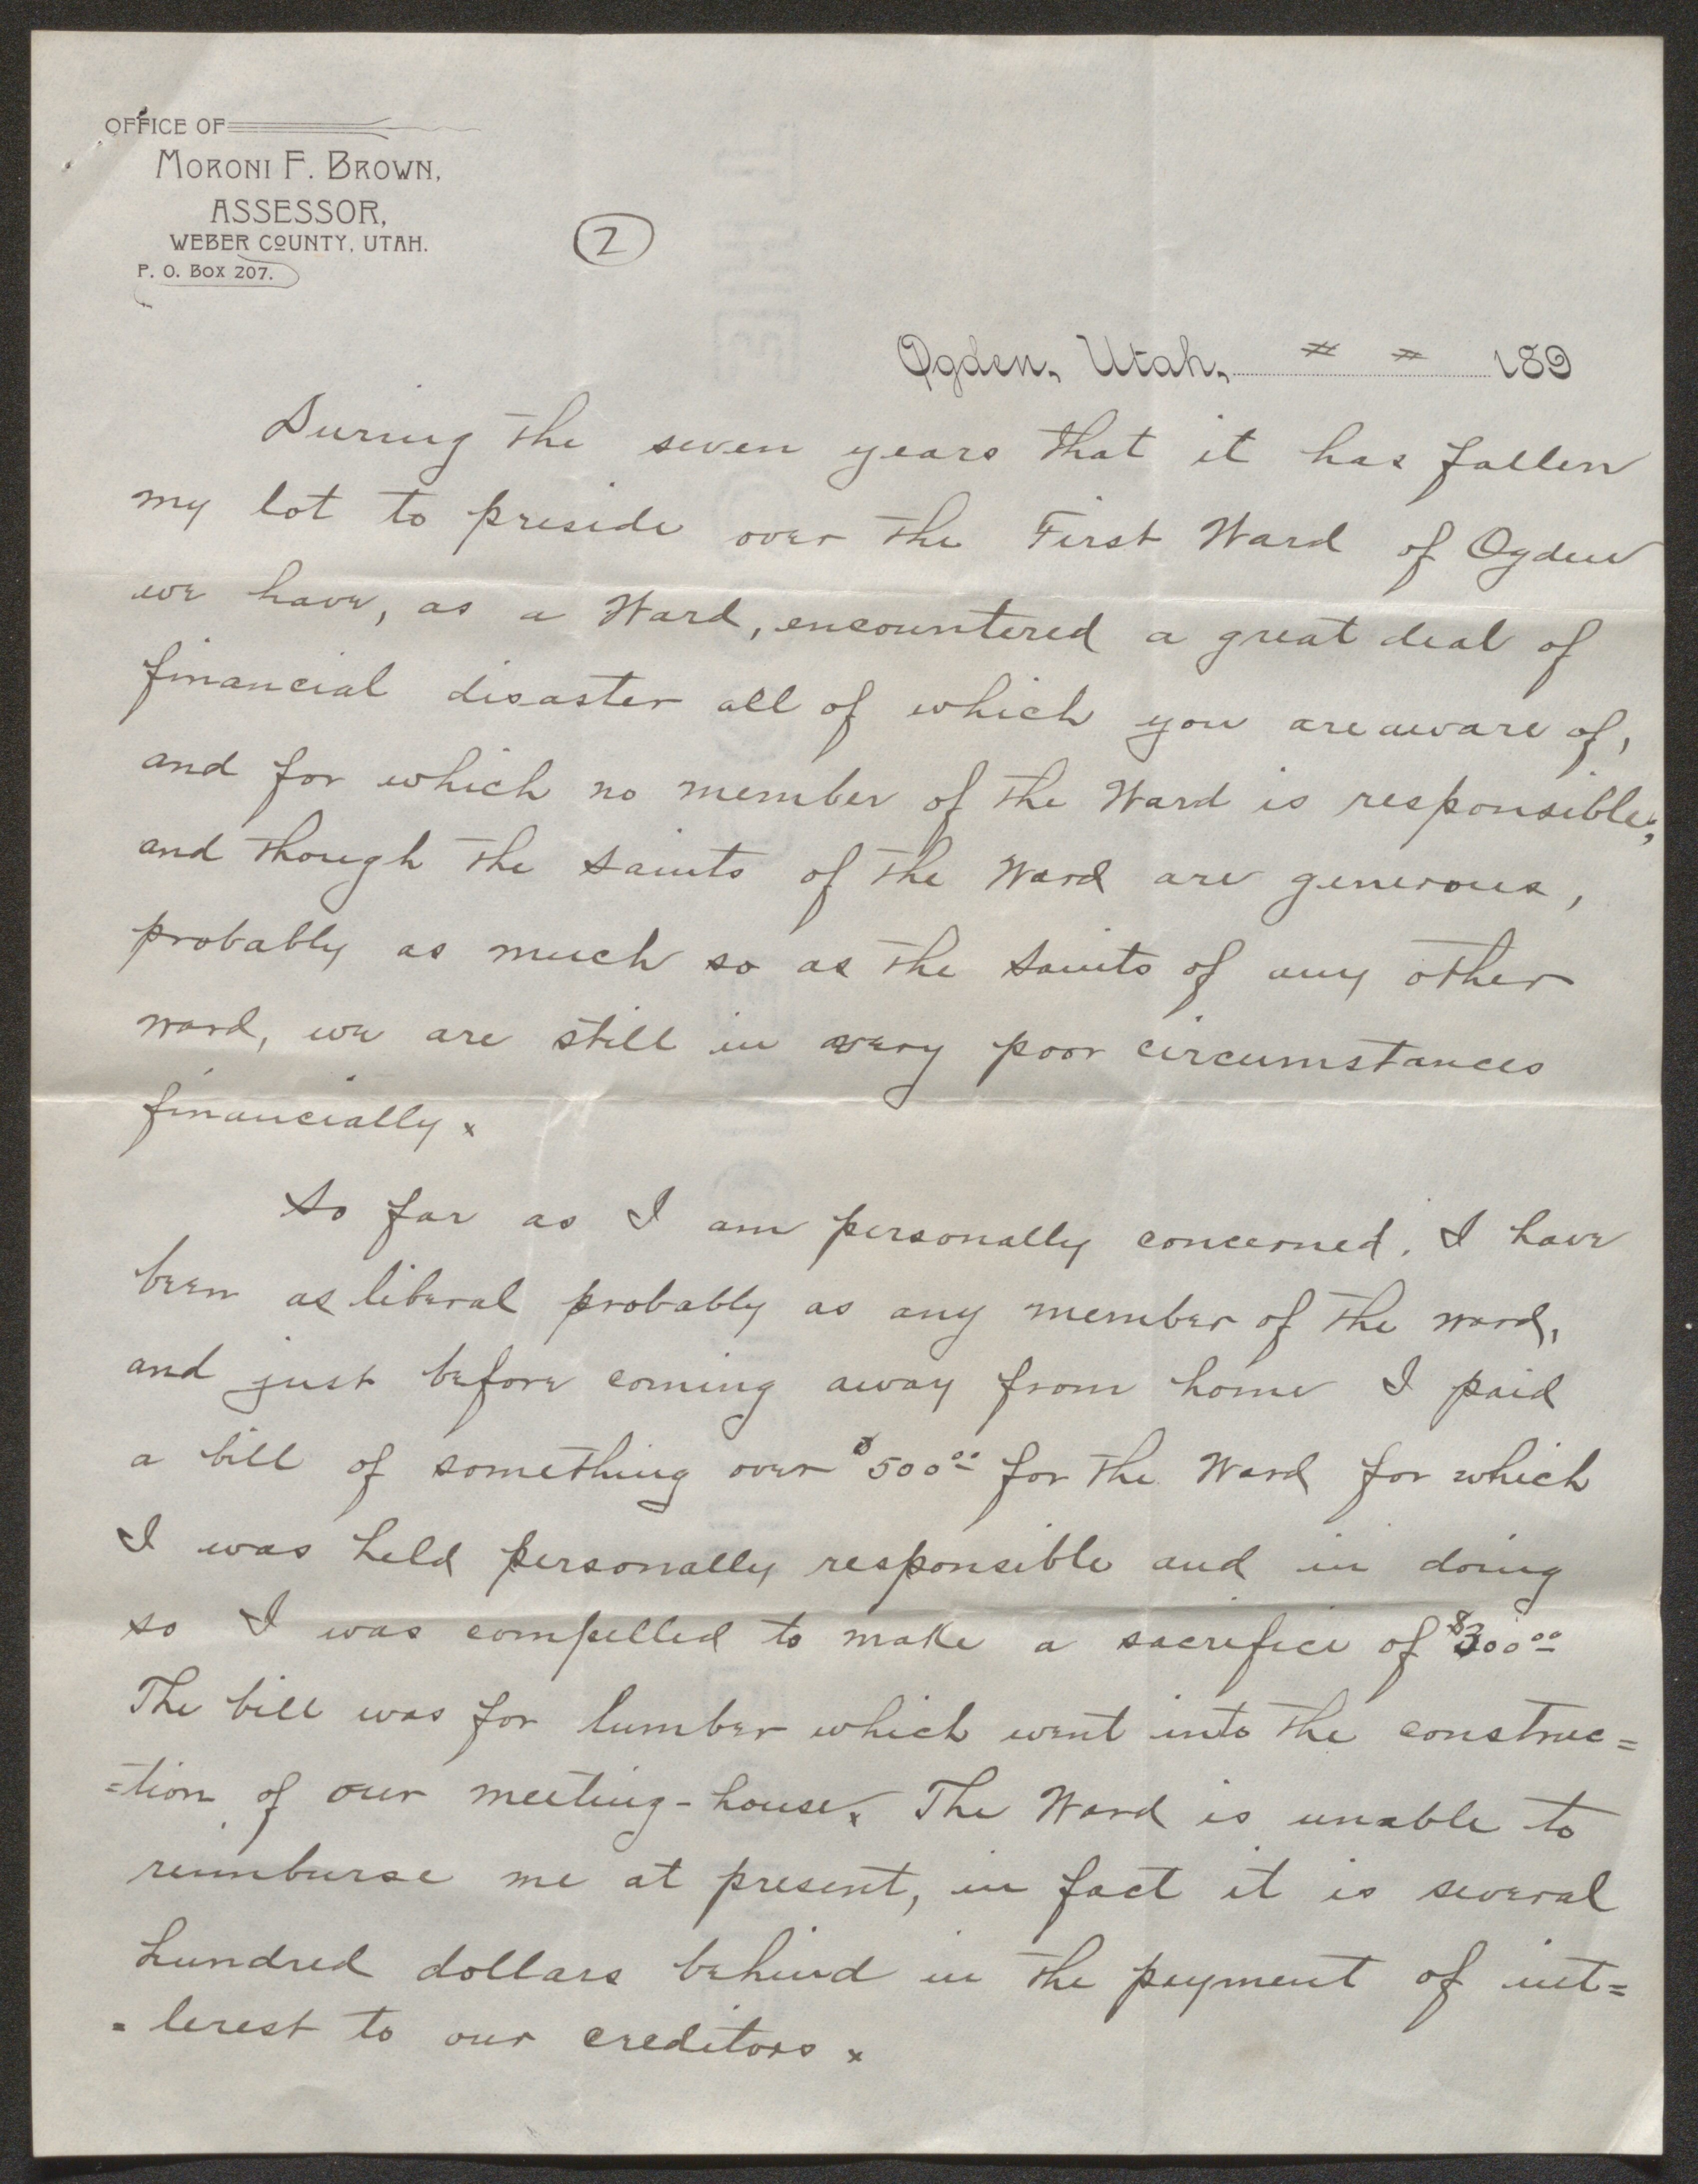 OFFICE OF
MORONI F. BROWN,
ASSESSOR,
WEBER COUNTY, UTAH.
P. O. BOX 207.
2
Ogden, Utah, = = 189
During the seven years that it has fallen
my lot to preside over the First Ward of Ogden
we have, as a Ward, encountered a great deal of
financial disaster all of which you are aware of,
and for which no member of the Ward is responsible;
and though the Saints of the Ward are generous,
probably as much so as the Saints of any other
ward, we are still in very poor circumstances
financially x
So far as I am personally concerned, I have
been as liberal probably as any member of the ward,
and just before coming away from home I paid
a bill of something over $500.00 for the Ward for which
I was held personally responsible and in doing
so I was compelled to make a sacrifice of $300.00
The bill was for lumber which went into the construc=
=tion of our meeting-house x The Ward is unable to
reimburse me at present, in fact it is several
hundred dollars behind in the payment of int=
=terest to our creditors x